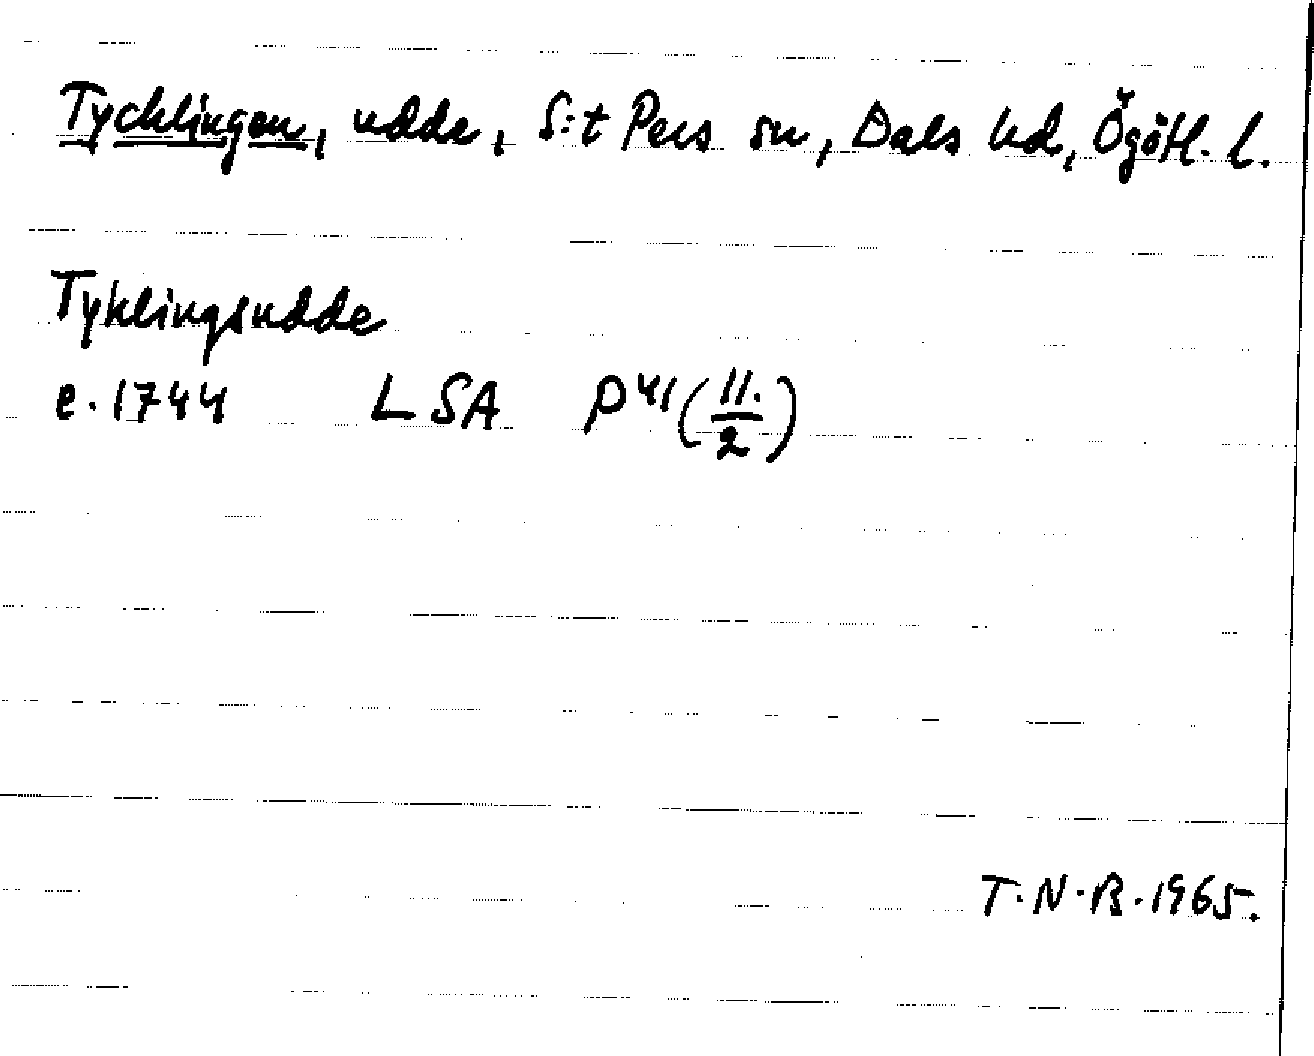 Tycklingen, udde, S:t Pers sn, Dals hd, Ögötl. l.
Tyklingsudde
e. 1744 LSA P41(11./2)
T.N.B. 1965.